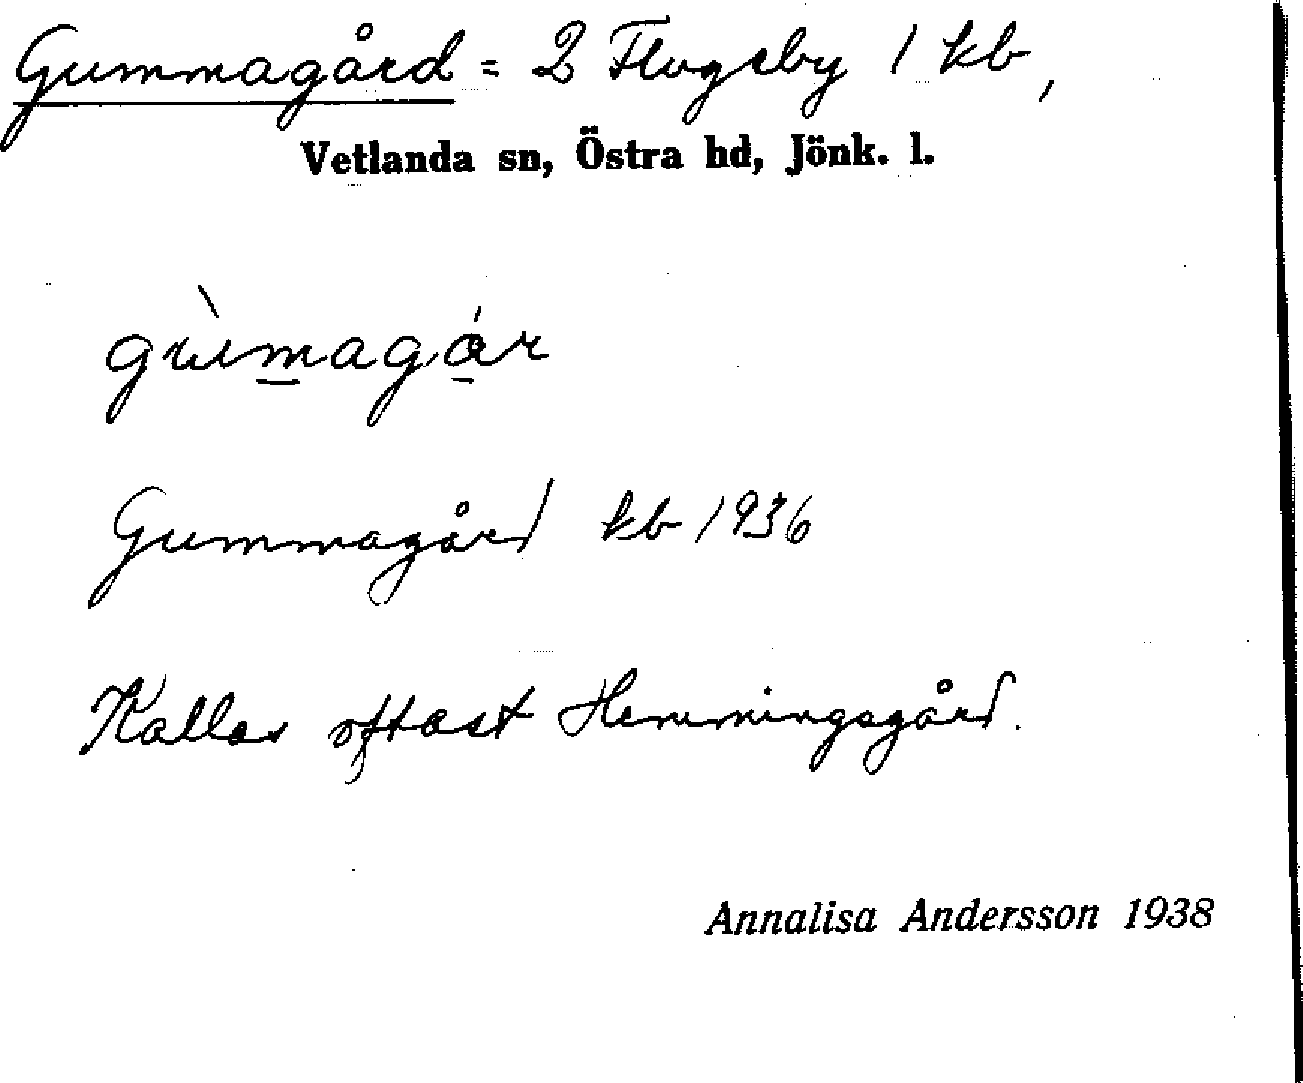 Gummagård = 2 Flugeby 1 kb,
Vetlanda sn, Östra hd, Jönk. l.
gùmagår
Gummagård kb 1936
Kallas oftast Hemmingsgård.
Annalisa Andersson 1938